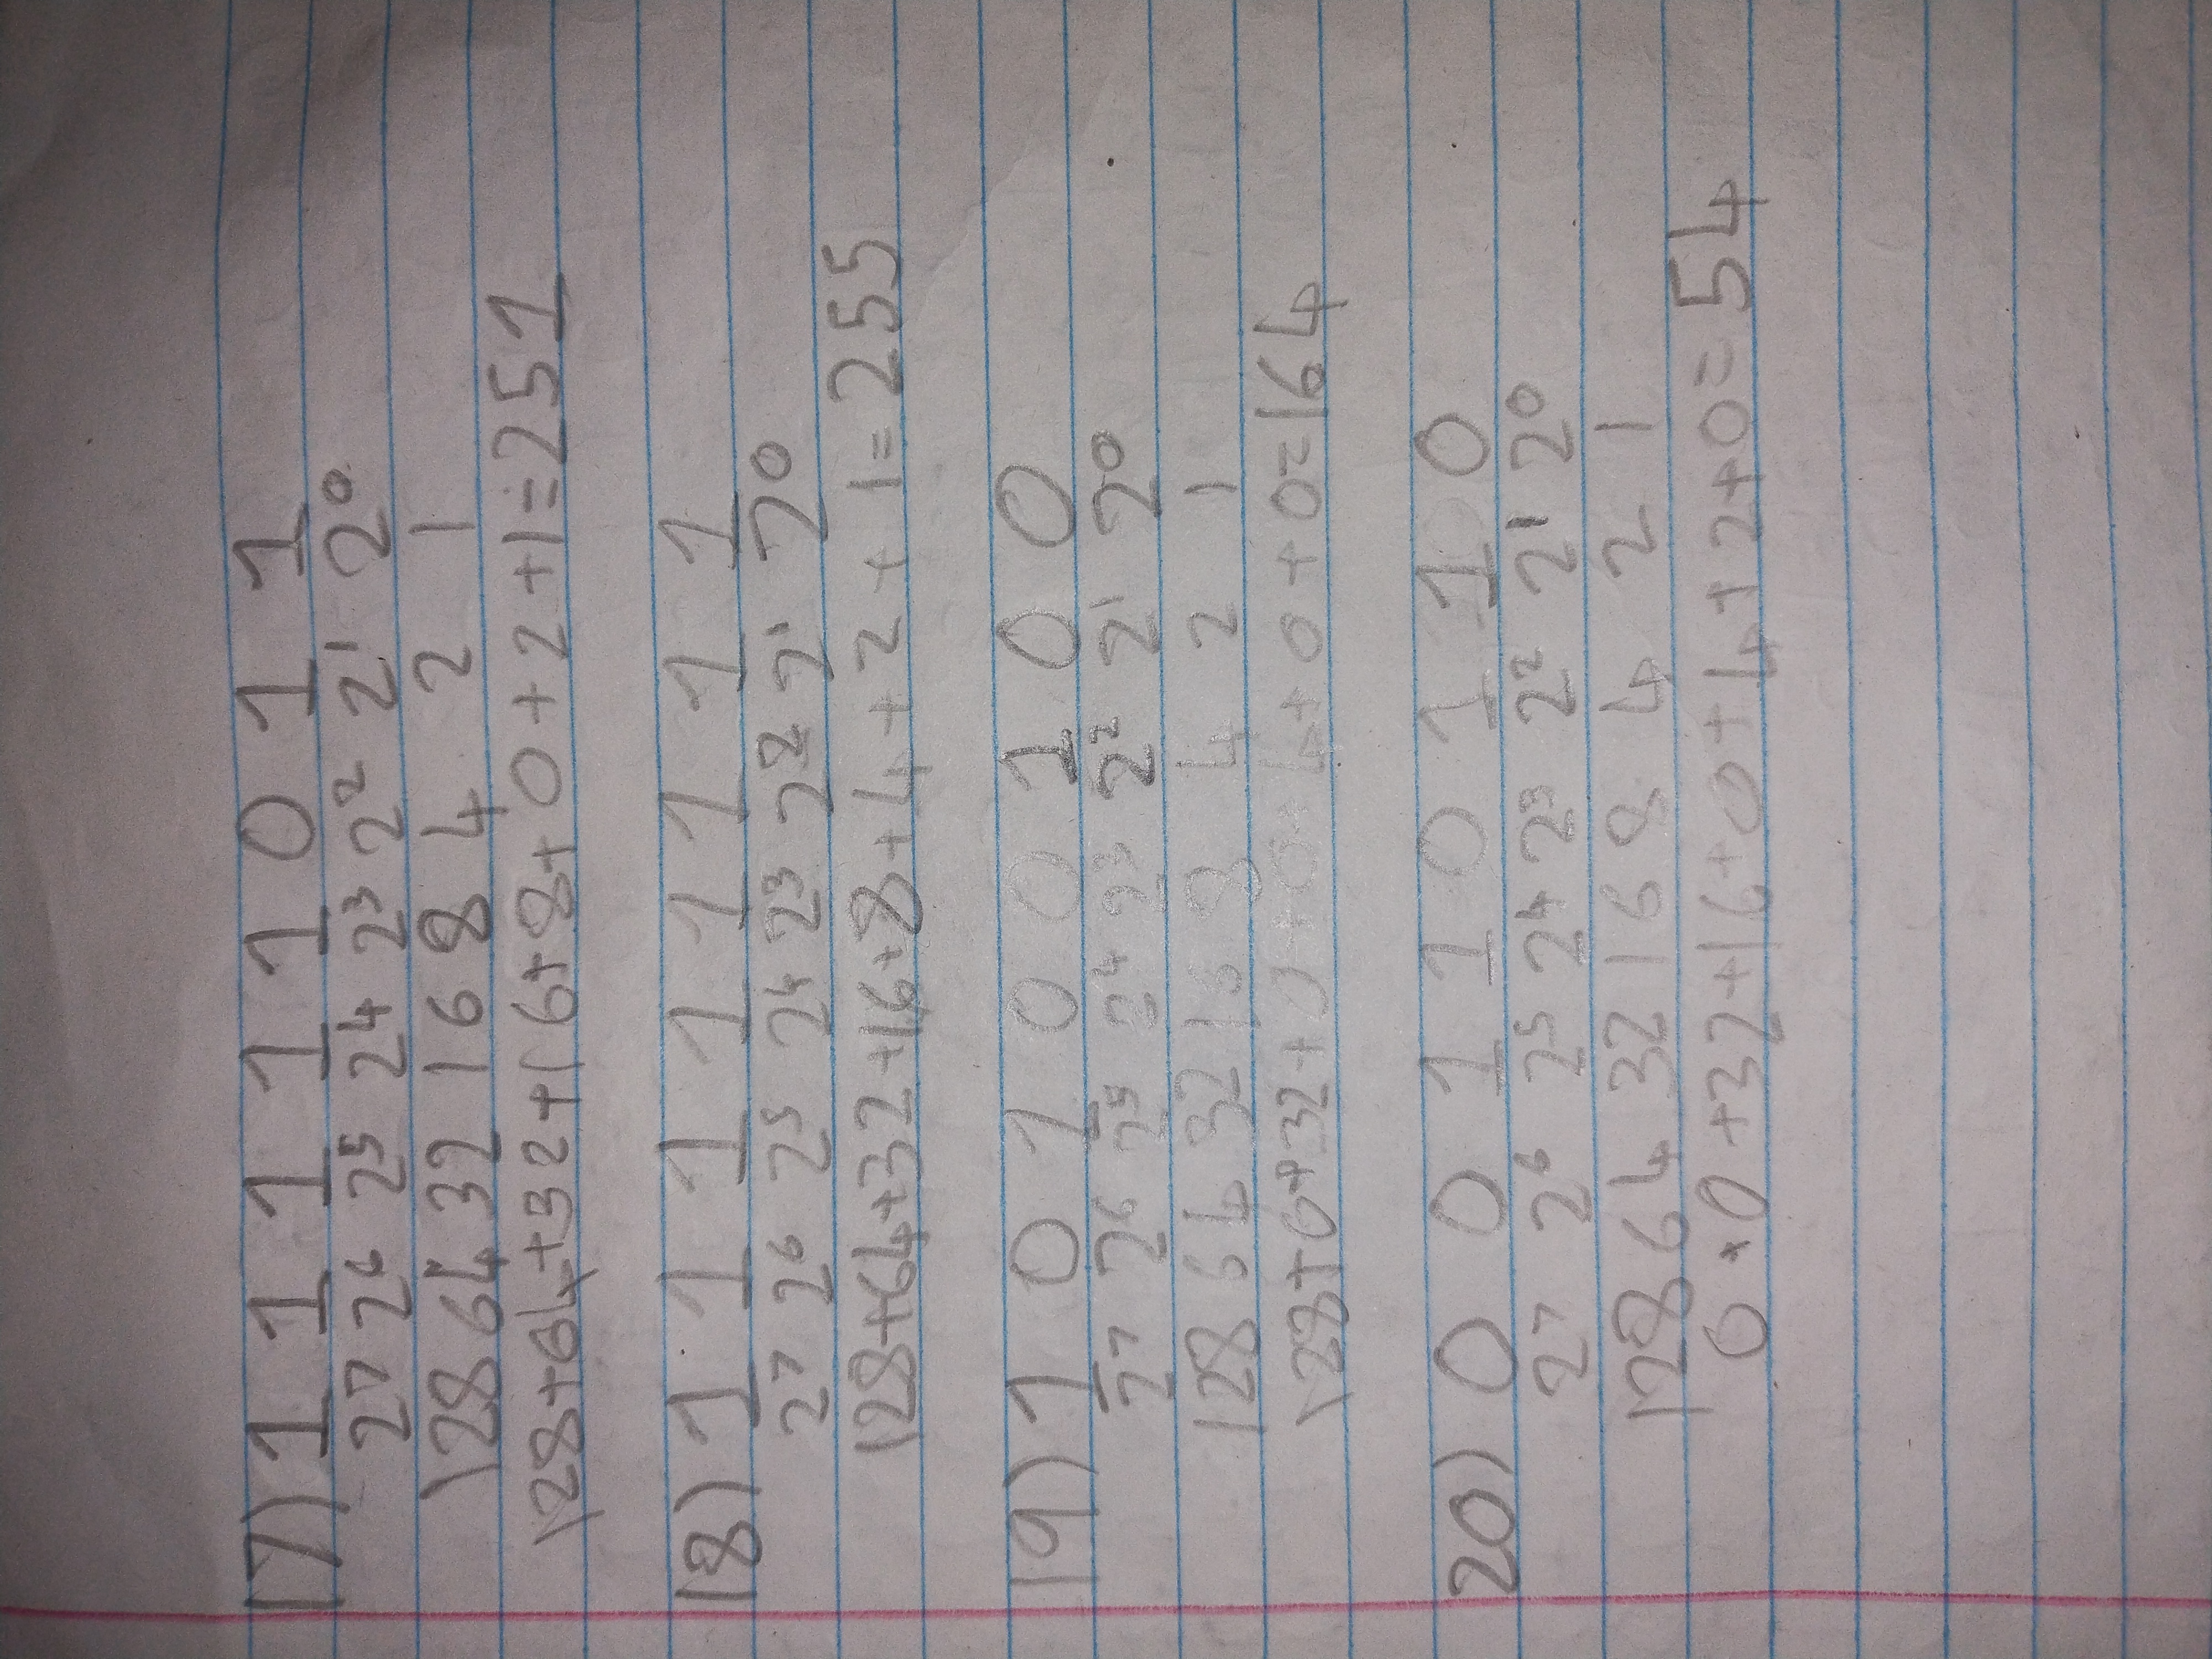 17) 1 1 1 1 1 0 1 1
2⁷ 2⁶ 2⁵ 2⁴ 2³ 2² 2¹ 2⁰
128 64 32 16 8 4 2 1
128+64+32+16+8+0+2+1=251
18) 1 1 1 1 1 1 1 1
2⁷ 2⁶ 2⁵ 2⁴ 2³ 2² 2¹ 2⁰
128+64+32+16+8+4+2+1=255
19) 1 0 1 0 0 1 0 0
2⁷ 2⁶ 2⁵ 2⁴ 2³ 2² 2¹ 2⁰
128 64 32 16 8 4 2 1
128+0+32+0+0+4+0+0=164
20) 0 0 1 1 0 1 1 0
2⁷ 2⁶ 2⁵ 2⁴ 2³ 2² 2¹ 2⁰
128 64 32 16 8 4 2 1
0+0+32+16+0+4+2+0=54